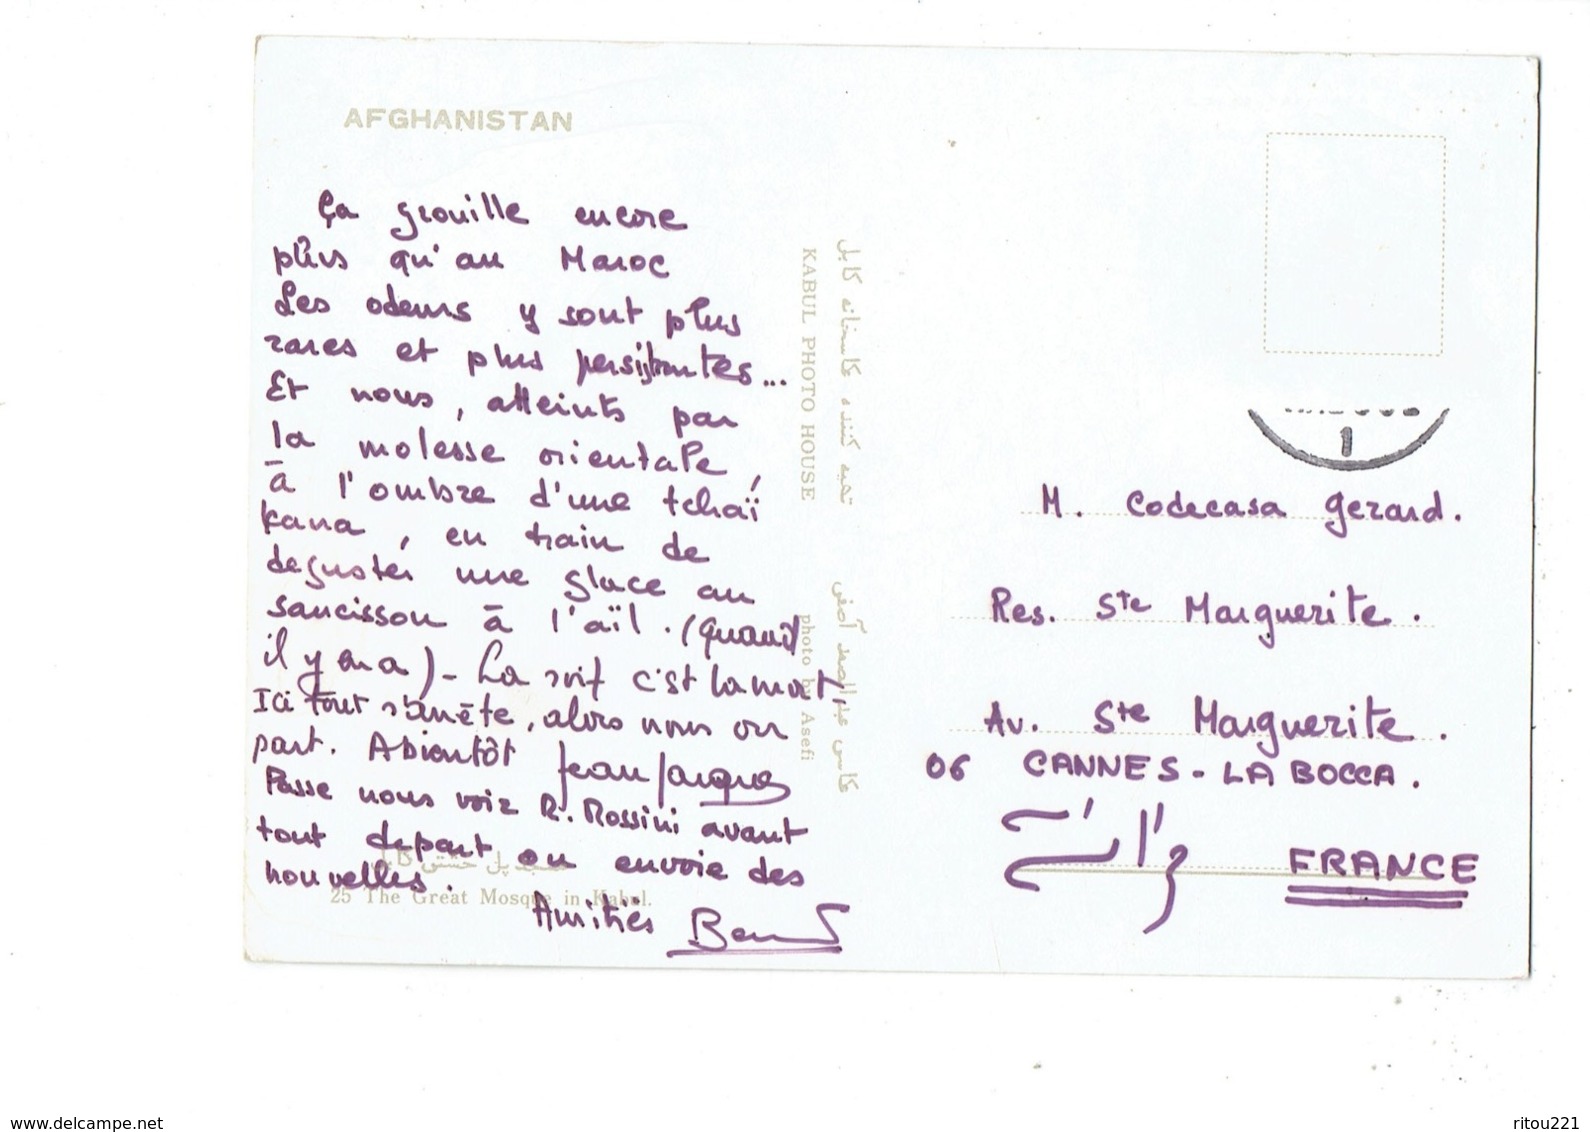 AFGHANISTAN
Ça grouille encore
plus qu'au Maroc
Les odeurs y sont plus
rares et plus persistantes...
Et nous, atteints par
la molesse orientale,
à l'ombre d'une tchaï
kana, en train de
deguster une glace au
saucisson à l'aïl. (quand
il y en a) - La soif c'est la mort,
Ici tout s'arrête, alors nous on
part. A bientôt Jean Jacques
Passe nous voir R. Rossini avant
tout depart ou envoie des
nouvelles.
Amitiés
مسجد پل خشتی کابل
25 The Great Mosque in Kabul.
تهیه کننده عکاسخانه کابل
KABUL PHOTO HOUSE
عکاسی عبدالصمد آصفی
photo by Asefi
1
M. Codecasa Gerard.
Res. Ste Marguerite.
Av. Ste Marguerite.
06 CANNES - LA BOCCA.
FRANCE
www.delcampe.net
ritou221